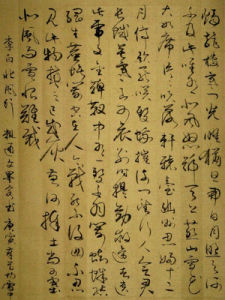 燭龍棲寒門光耀猶旦開日月照之何
不及此唯有北風號怒天上來燕山雪花
大如席片片吹落軒轅臺幽州思婦十二
月停歌罷笑雙蛾摧倚門望行人念君
長城苦寒良可哀別時提劍救邊去遺
此虎文金鞞靫中有一雙白羽箭蜘蛛結
網生塵埃箭空在人今戰死不復回不忍
見此物焚之已成灰黃河捧土尚可塞
北風雨雪恨難裁
李白北風行 庚寅